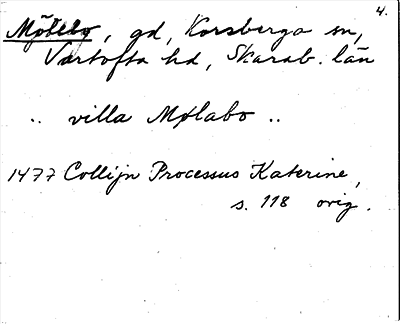 4.
Möleby, gd, Korsberga sn,
Vartofta hd, Skarab. län
.. villa Mølabo ..
1477 Collijn Processus Katerine,
s. 118 orig.